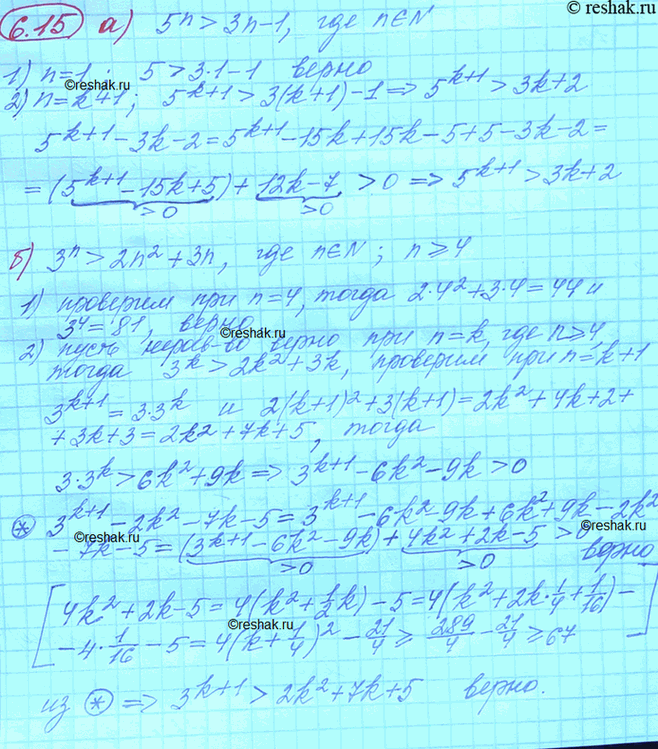 © reshak.ru
6.15 а) 5ⁿ > 3n-1, где n∈N
1) n=1; 5 > 3·1-1 верно
©reshak.ru
2) n=k+1; 5ᵏ⁺¹ > 3(k+1)-1 => 5ᵏ⁺¹ > 3k+2
5ᵏ⁺¹-3k-2=5ᵏ⁺¹-15k+15k-5+5-3k-2=
=(5ᵏ⁺¹-15k+5)+12k-7 >0 => 5ᵏ⁺¹ > 3k+2
>0 >0
©reshak.ru
б) 3ⁿ > 2n²+3n, где n∈N; n≥4
1) проверим при n=4, тогда 2·4²+3·4=44 и
3⁴=81, верно
©reshak.ru
2) пусть нерав-во верно при n=k, где n≥4,
тогда 3ᵏ > 2k²+3k, проверим при n=k+1
3ᵏ⁺¹=3·3ᵏ и 2(k+1)²+3(k+1)=2k²+4k+2+
+3k+3=2k²+7k+5, тогда
3·3ᵏ > 6k²+9k => 3ᵏ⁺¹-6k²-9k >0
⊛ 3ᵏ⁺¹-2k²-7k-5=3ᵏ⁺¹-6k²-9k+6k²+9k-2k²
©reshak.ru
©reshak.ru
-7k-5=(3ᵏ⁺¹-6k²-9k)+4k²+2k-5 >0
>0 >0 верно
[4k²+2k-5=4(k²+1/2k)-5=4(k²+2k·1/4+1/16)-
©reshak.ru
-4·1/16-5=4(k+1/4)²-21/4 ≥ 289/4-21/4 ≥ 67]
из ⊛ => 3ᵏ⁺¹ > 2k²+7k+5 верно.
©reshak.ru